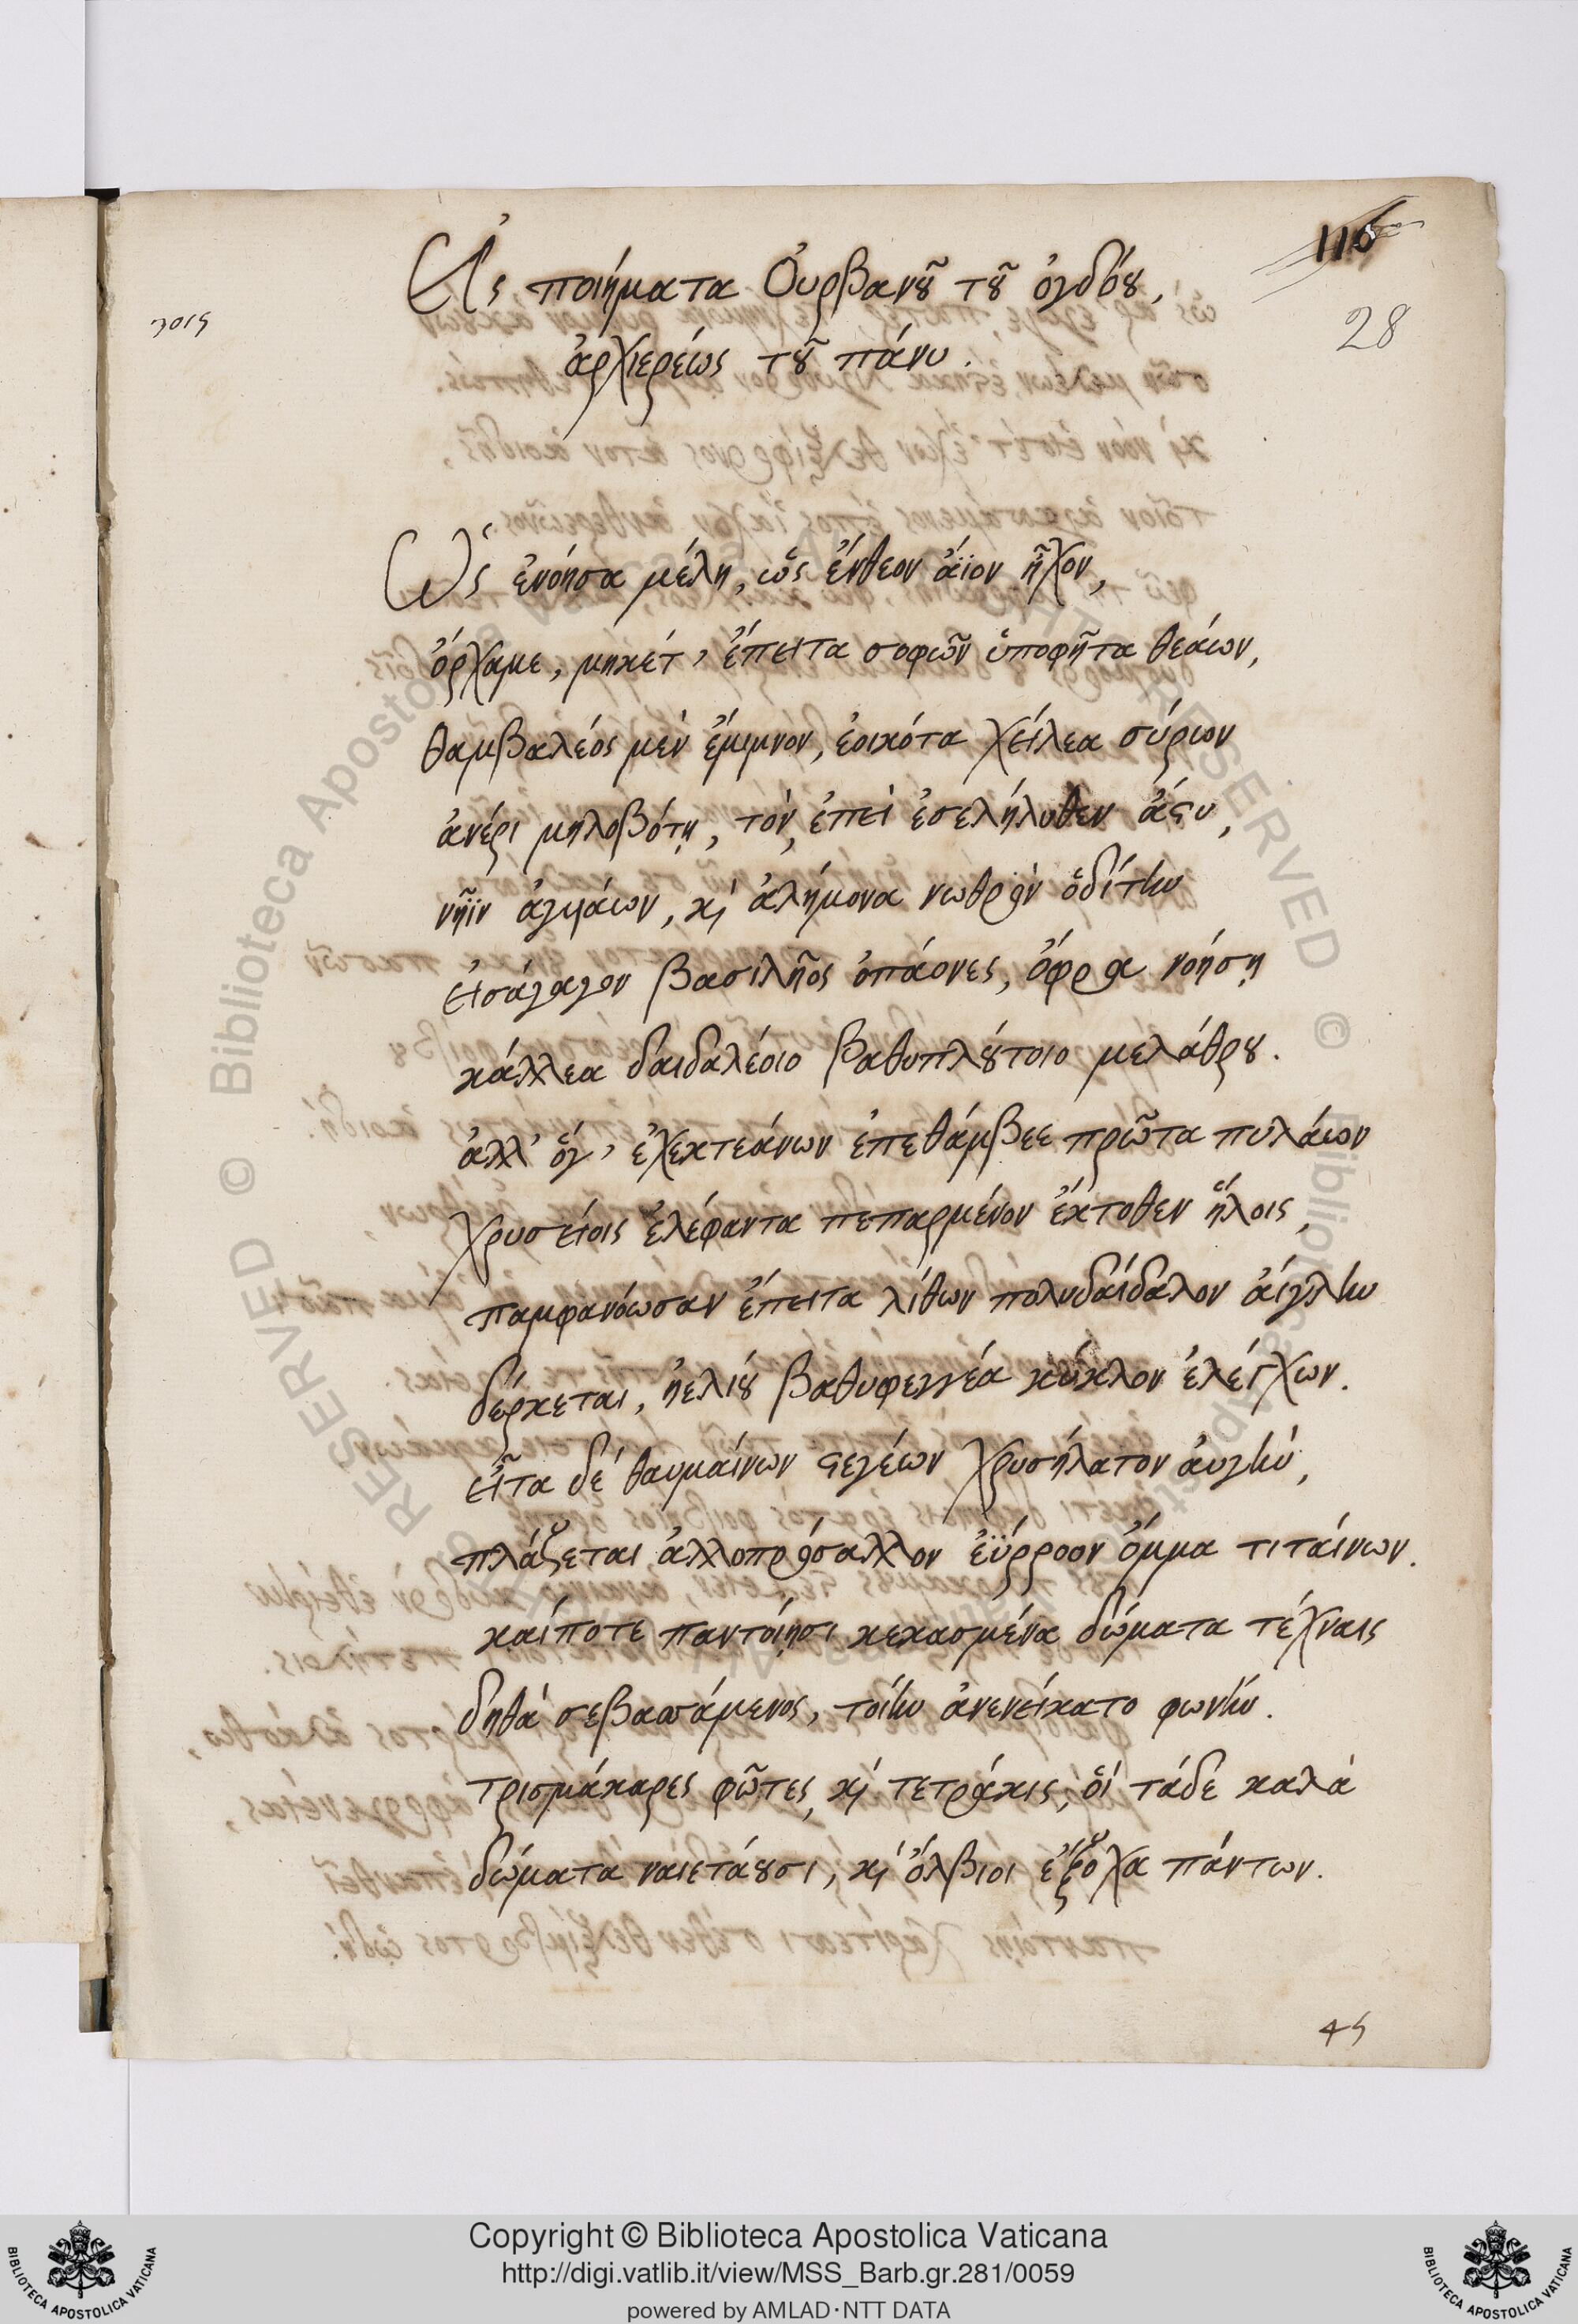 116
28
3015
Εἰς ποιήματα Οὐρβανοῦ τοῦ ὀγδόου,
ἀρχιερέως τοῦ πάνυ.
Ὡς ἐνόησα μέλη, ὡς ἔνθεον ἄϊον ἦχον,
ὄρχαμε, μηκέτ' ἔπειτα σοφῶν ὑποφῆτα θεάων,
θαμβαλέος μὲν ἔμιμνον, ἐοικότα χείλεα σύρων
ἀνέρι μηλοβότῃ, τὸν, ἐπεὶ ἐσελήλυθεν ἄστυ,
νῆϊν ἀγυιάων, καὶ ἀλήμονα νωθρὸν ὁδίτην
εἰσάγαγον βασιλῆος ὀπάονες, ὄφρα νοήσῃ
κάλλεα δαιδαλέοιο βαθυπλούτοιο μελάθρου.
ἀλλ' ὅγ' ἐχεκτεάνων ἐπεθάμβεε πρῶτα πυλάων
χρυσείοις ἐλέφαντα πεπαρμένον ἔκτοθεν ἥλοις,
παμφανόωσαν ἔπειτα λίθων πολυδαίδαλον αἴγλην
δέρκεται, ἠελίου βαθυφεγγέα κύκλον ἐλέγχων.
εἶτα δὲ θαυμαίνων στεγέων χρυσήλατον αὐγὴν,
πλάζεται ἀλλοπρόσαλλον ἐΰρροον ὄμμα τιταίνων.
καίποτε παντοίῃσι κεκασμένα δώματα τέχναις
δηθὰ σεβασσάμενος, τοίην ἀνενείκατο φωνήν.
τρισμάκαρες φῶτες, καὶ τετράκις, οἳ τάδε καλὰ
δώματα ναιετάουσι, καὶ ὄλβιοι ἔξοχα πάντων.
45
© Biblioteca Apostolica Vaticana
RESERVED
Copyright © Biblioteca Apostolica Vaticana
http://digi.vatlib.it/view/MSS_Barb.gr.281/0059
powered by AMLAD·NTT DATA
BIBLIOTECA APOSTOLICA VATICANA
BIBLIOTECA APOSTOLICA VATICANA